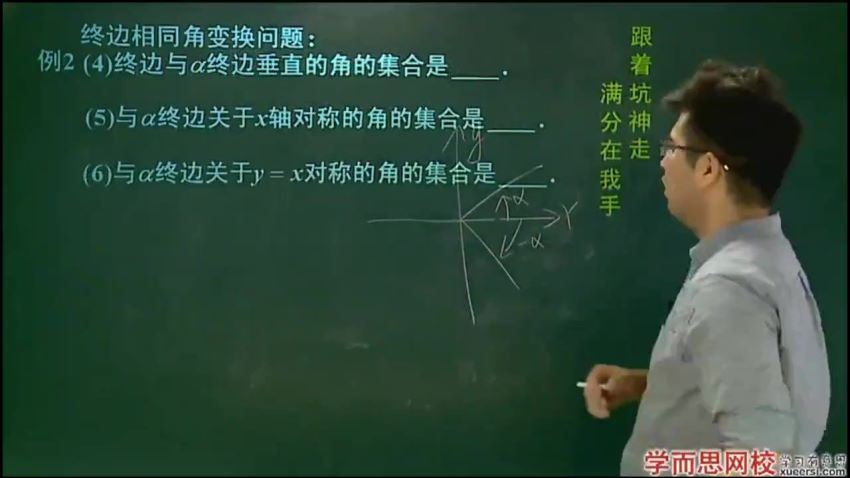 终边相同角变换问题：
例2 (4)终边与α终边垂直的角的集合是____．
(5)与α终边关于x轴对称的角的集合是____．
(6)与α终边关于y = x对称的角的集合是____．
y
α
x
-α
跟着坑神走
满分在我手
学而思网校
xueersi.com